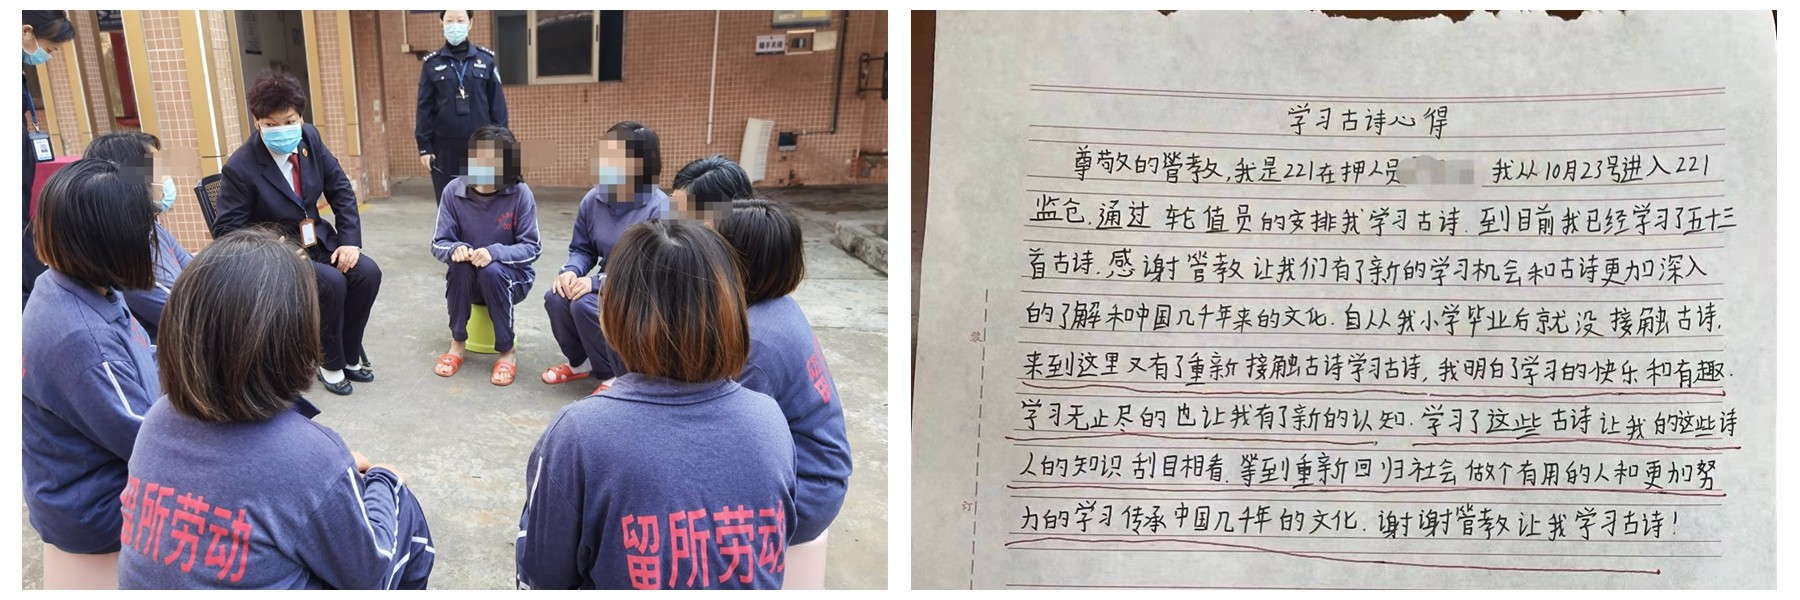 随手关门
留所劳动
留所劳动
学习古诗心得
尊敬的管教,我是221在押人员 我从10月23号进入221
监仓.通过轮值员的安排我学习古诗.到目前我已经学习了五十三
首古诗.感谢管教让我们有了新的学习机会和古诗更加深入
的了解和中国几千年来的文化.自从我小学毕业后就没接触古诗.
来到这里又有了重新接触古诗学习古诗,我明白了学习的快乐和有趣.
学习无止尽的也让我有了新的认知.学习了这些古诗让我的这些诗
人的知识刮目相看.等到重新回归社会做个有用的人和更加努
力的学习传承中国几千年的文化.谢谢管教让我学习古诗!
装
订